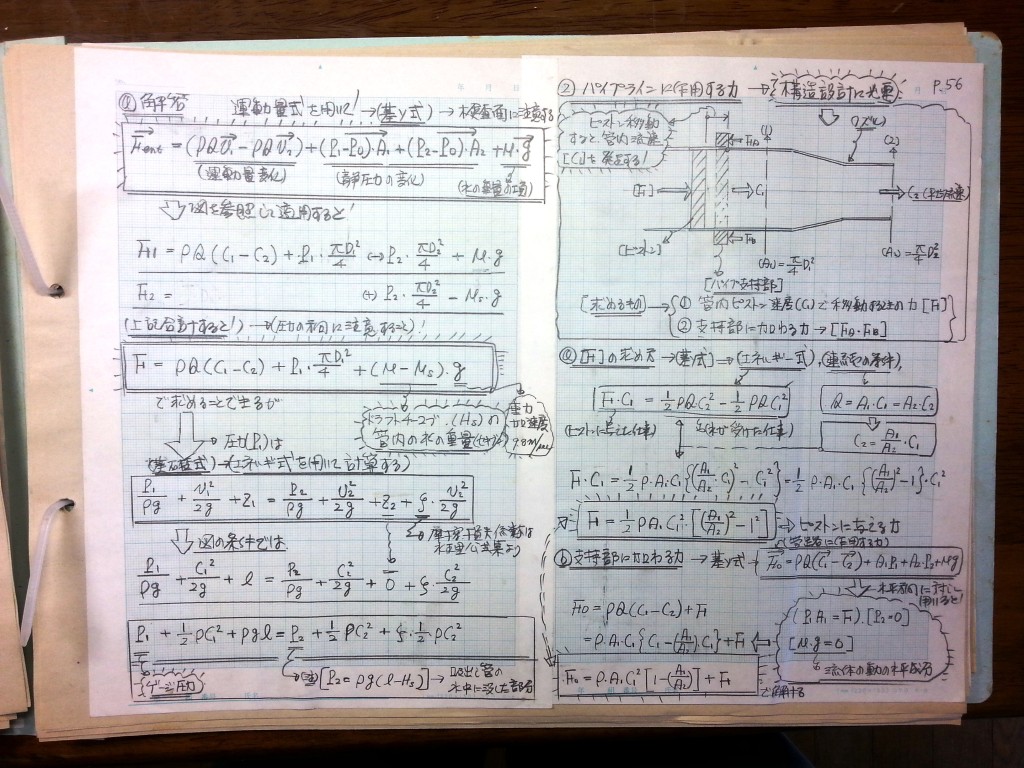 解答 運動量式を用いて! →(基本式)→ 検査面に注意する
F⃗ent = (ρQv⃗1 − ρQv⃗2) + (P1−P0)·A1 + (P2−P0)·A2 + M·g⃗
(運動量変化) (静圧力の変化)
図を参照して適用すると!
F1 = ρQ(C1−C2) + P1·πD1²/4 ↔ P2·πD2²/4 + M·g
F2 = (+) P2·πD2²/4 − Ms·g
(上記合計すると!) →(圧力の方向に注意すること)!
F = ρQ(C1−C2) + P1·πD1²/4 + (M−Ms)·g
で求めることできるが
ドラフトチューブ(Hs)の
管内の水の重量
重力
加速度
9.8m/sec
圧力(P1)は
(基礎式)→(エネルギ式を用いて計算する)
P1/ρg + v1²/2g + Z1 = P2/ρg + v2²/2g + Z2 + ζ·v2²/2g
図の条件では
摩擦損失係数は
P1/ρg + C1²/2g + l = P2/ρg + C2²/2g + 0 + ζ·C2²/2g
P1 + 1/2 ρC1² + ρgl = P2 + 1/2 ρC2² + ζ·1/2 ρC2²
ゲージ圧力
[P2 = ρg(l−Hs)] → 吸出し管の
水中に没した部分
P.56
② パイプラインに作用する力 → 構造設計に必要
ピストン移動
すると管内流速
[C1]を発生する!
(1) (ノズル) (2)
FB
[F1] C1 C2 (平均流速)
FB
[ピストン] (A1)=π/4 D1² (A2)=π/4 D2²
[パイプ支持部]
[求めるもの] → ① 管内ピストン速度(C1)で移動するときの力 [F1]
② 支持部に加わる力 → [FB·FB]
ⓐ [F1]の求め方 →(基本式)→(エネルギー式),(連続の条件)
F1·C1 = 1/2 ρQC2² − 1/2 ρQC1²
Q = A1·C1 = A2·C2
(ピストンに与えた仕事) 流体が受けた仕事
C2 = A1/A2·C1
F·C1 = 1/2 ρ·A1C1{(A1/A2·C1)² − C1²} = 1/2 ρ·A1·C1{(A1/A2)²−1}·C1²
F1 = 1/2 ρA1C1²[(A1/A2)² − 1²] → ピストンに与える力
(管路に作用する力)
ⓑ 支持部に加わる力 → 基本式 → F⃗0 = ρQ(C⃗1−C⃗2) + A1P1 + A2·P2 + Mg
水平方向に対して
用いると!
F0 = ρQ(C1−C2) + F1
= ρ·A1C1{C1−(A1/A2)·C1} + F1
(P1A1 = F1)·[P2=0]
[M·g=0]
流体の動の水平成分
F0 = ρ·A1C1²[1−(A1/A2)] + F1
で解ける